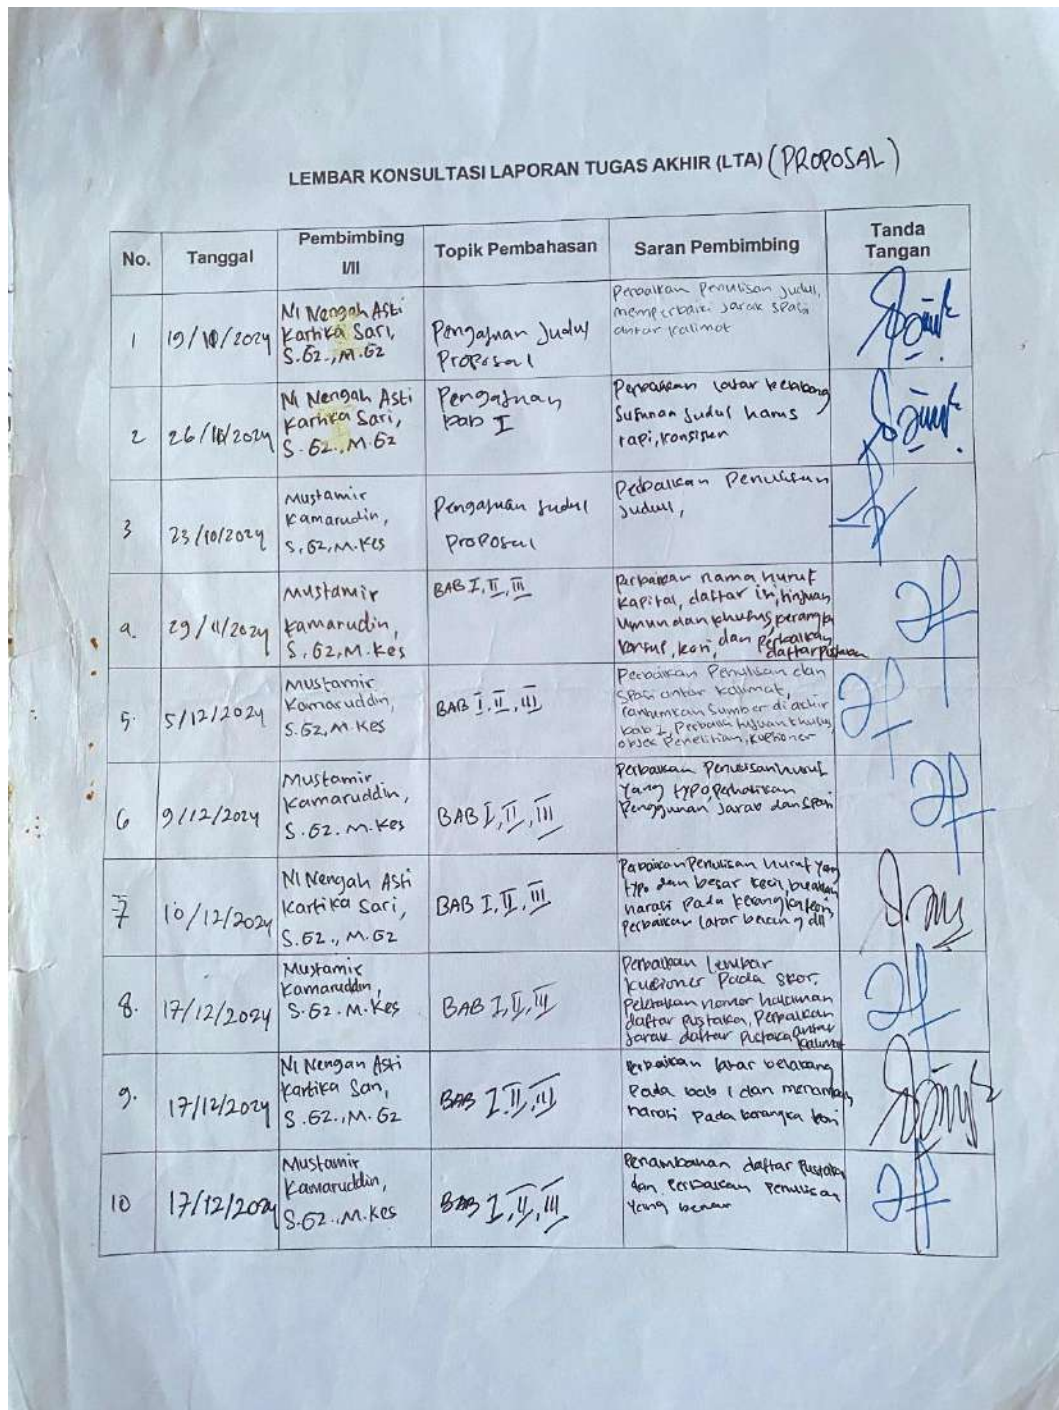 LEMBAR KONSULTASI LAPORAN TUGAS AKHIR (LTA) (PROPOSAL)
No.
Tanggal
Pembimbing
I/II
Topik Pembahasan
Saran Pembimbing
Tanda
Tangan
1
19/10/2024
Ni Nengah Asti
Kartika Sari,
S.Gz., M.Gz
Pengajuan Judul
Proposal
Perbaikan Penulisan Judul,
memperbaiki jarak spasi
antar kalimat
2
26/10/2024
Ni Nengah Asti
Kartika Sari,
S.Gz., M.Gz
Pengajuan
bab I
Perbaikan latar belakang
Susunan Judul harus
rapi, konsisten
3
23/10/2024
Mustamir
Kamarudin,
S.Gz, M.Kes
Pengajuan Judul
Proposal
Perbaikan Penulisan
Judul,
29/11/2024
Mustamir
Kamarudin,
S.Gz, M.Kes
BAB I, II, III
Perbaikan nama huruf
Kapital, daftar isi, tinjuan
Umun dan khusus, kerangka
teori, dan Perbaikan
daftar pustaka
5.
5/12/2024
Mustamir
Kamaruddin,
S.Gz, M.Kes
BAB I, II, III
Perbaikan Penulisan dan
Spasi antar kalimat,
cantumkan Sumber di akhir
bab I, Perbaiki tujuan khusus,
objek Penelitian, kuesioner
6
9/12/2024
Mustamir
Kamaruddin,
S.Gz. M.Kes
BAB I, II, III
Perbaikan Penulisan huruf
Yang typo, perhatikan
Penggunan Jarak dan spasi
7
10/12/2024
Ni Nengah Asti
Kartika Sari,
S.Gz., M.Gz
BAB I, II, III
Perbaikan Penulisan huruf Yang
typo dan besar kecil, buatkan
narasi Pada kerangka teori,
perbaikan latar belakang dll
8.
17/12/2024
Mustamir
Kamaruddin,
S.Gz. M.Kes
BAB I, II, III
Perbaikan Lembar
kuesioner Pada skor,
Peletakan nomor halaman
daftar Pustaka, Perbaikan
Jarak daftar Pustaka antar
kalimat
9.
17/12/2024
Ni Nengah Asti
Kartika Sari,
S.Gz., M.Gz
BAB I, II, III
Perbaikan latar belakang
Pada bab 1 dan menambah
narasi Pada kerangka teori
10
17/12/2024
Mustamir
Kamaruddin,
S.Gz., M.Kes
BAB I, II, III
Penambahan daftar Pustaka
dan Perbaikan Penulisan
Yang benar